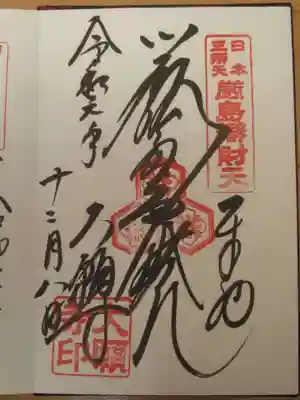 日本
三弁天
厳島辨財天
奉拝
厳島弁財天
大願寺
令和六年
十二月八日
大願
寺印